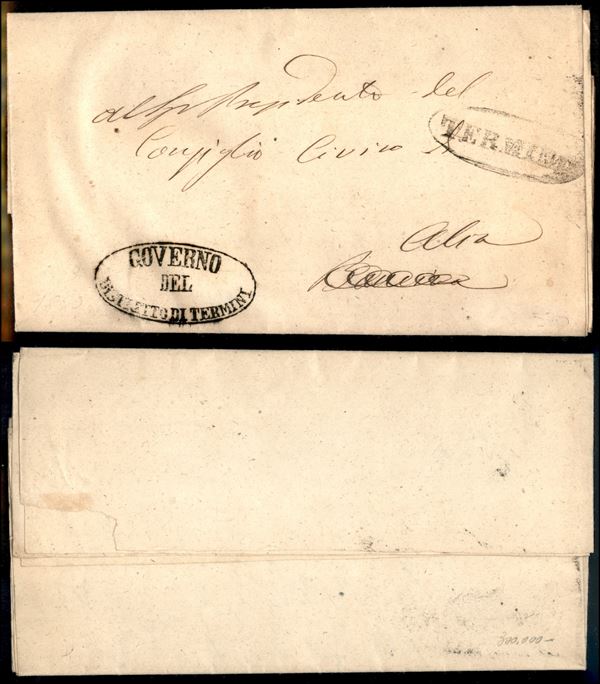 Al Sig.r Presidente del
Consiglio Civico di
TERMINI
Alia
GOVERNO
DEL
DISTRETTO DI TERMINI
300.000-